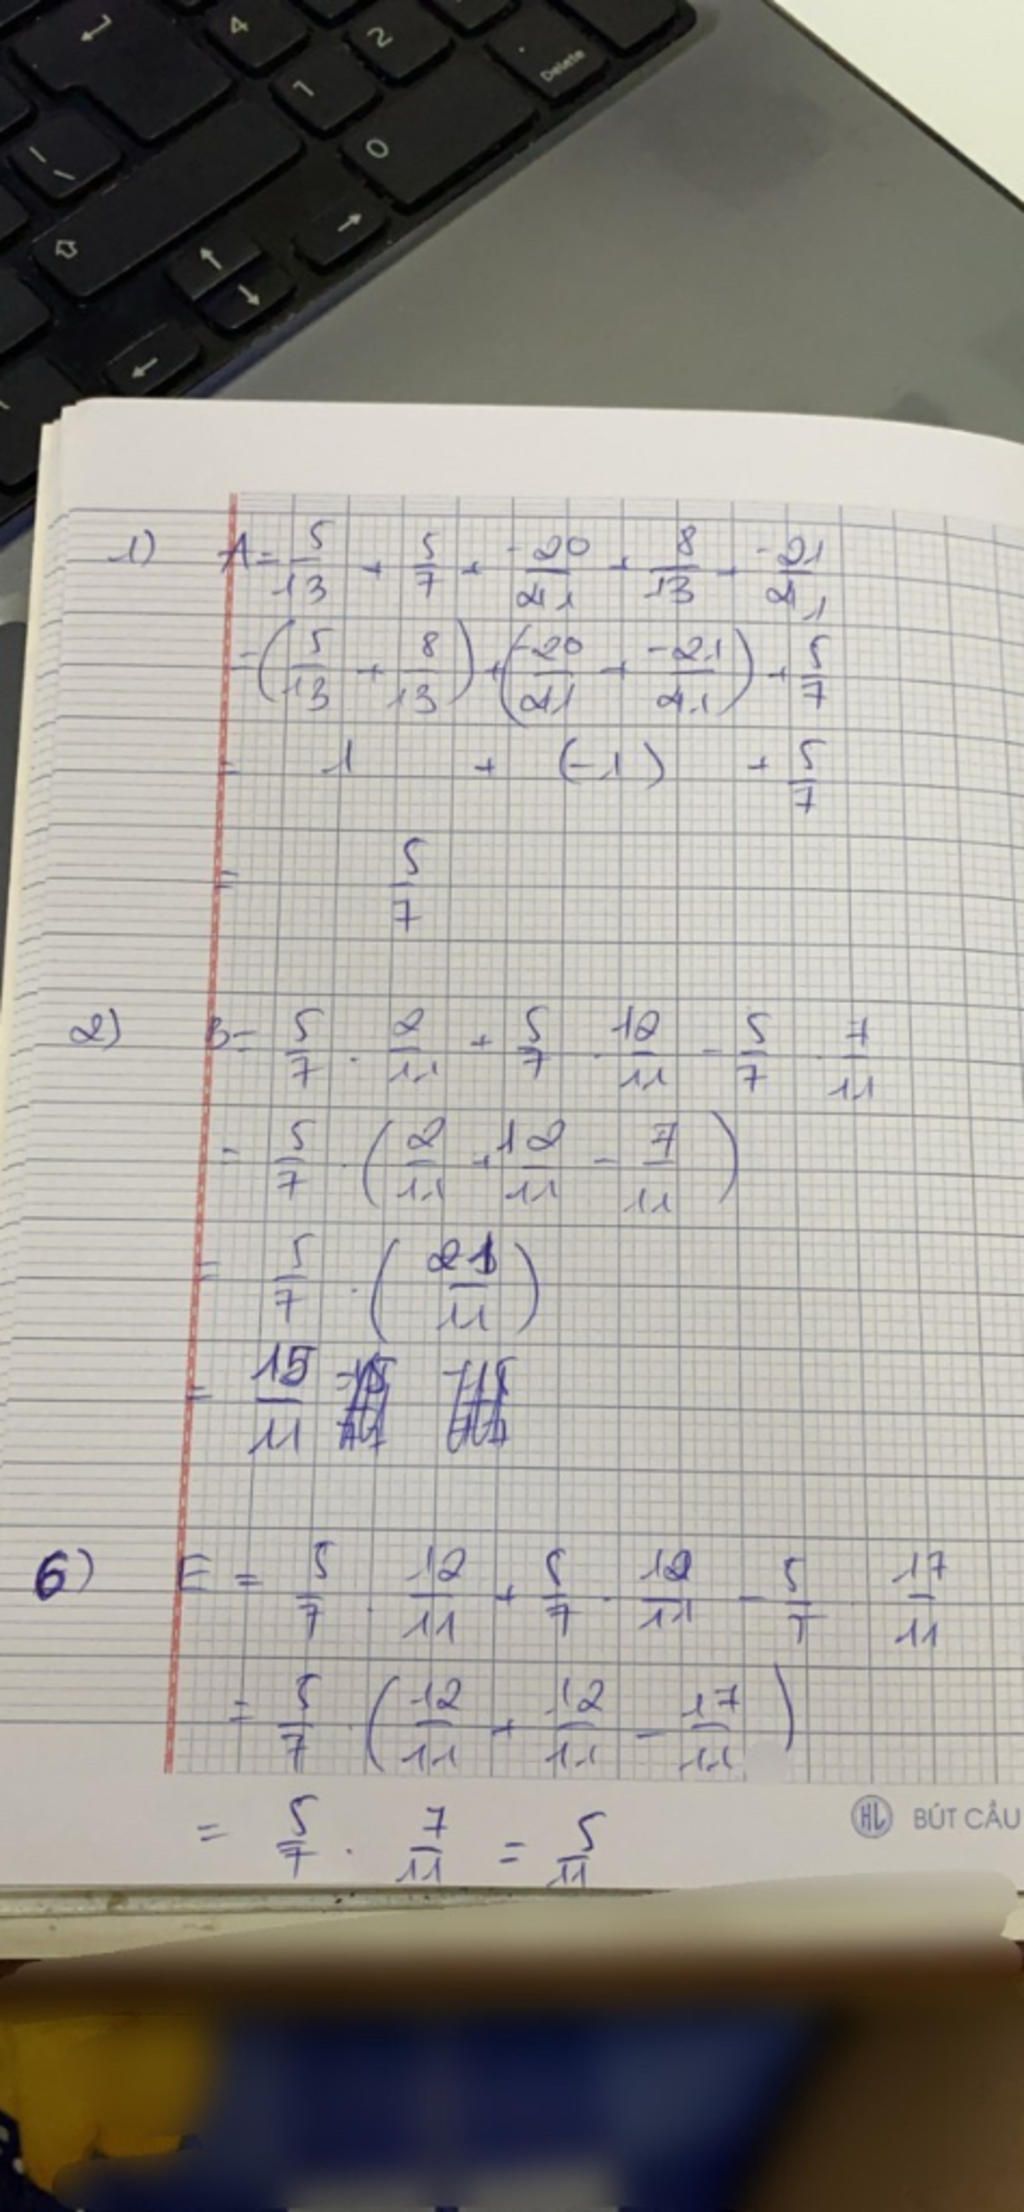 4 2
1 0 . Delete
1) A = 5/13 + 5/7 + -20/41 + 8/13 + -21/41
= (5/13 + 8/13) + (-20/41 + -21/41) + 5/7
= 1 + (-1) + 5/7
= 5/7
2) B = 5/7 . 2/11 + 5/7 . 12/11 - 5/7 . 7/11
= 5/7 . (2/11 + 12/11 - 7/11)
= 5/7 . (21/11)
= 15/11
6) E = 5/7 . 12/11 + 5/7 . 12/11 - 5/7 . 17/11
= 5/7 . (12/11 + 12/11 - 17/11)
= 5/7 . 7/11 = 5/11
HL BÚT CẦU